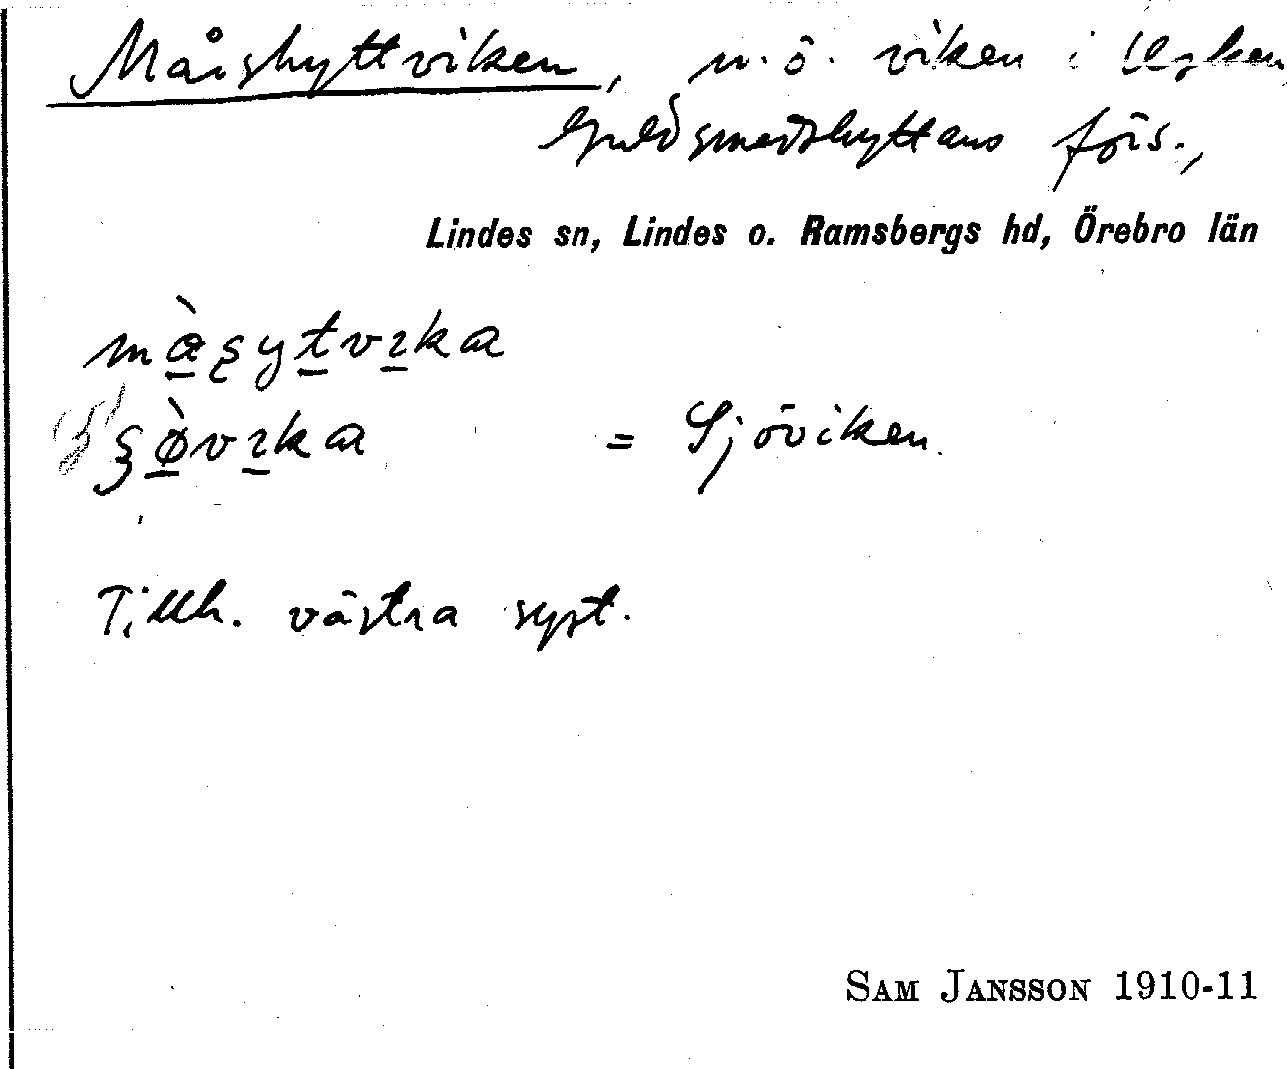 Mårshyttviken, n.ö. viken i Usken
Guldsmedshyttans förs.,
Lindes sn, Lindes o. Ramsbergs hd, Örebro län
= Sjöviken.
Tillh. västra syst.
SAM JANSSON 1910-11